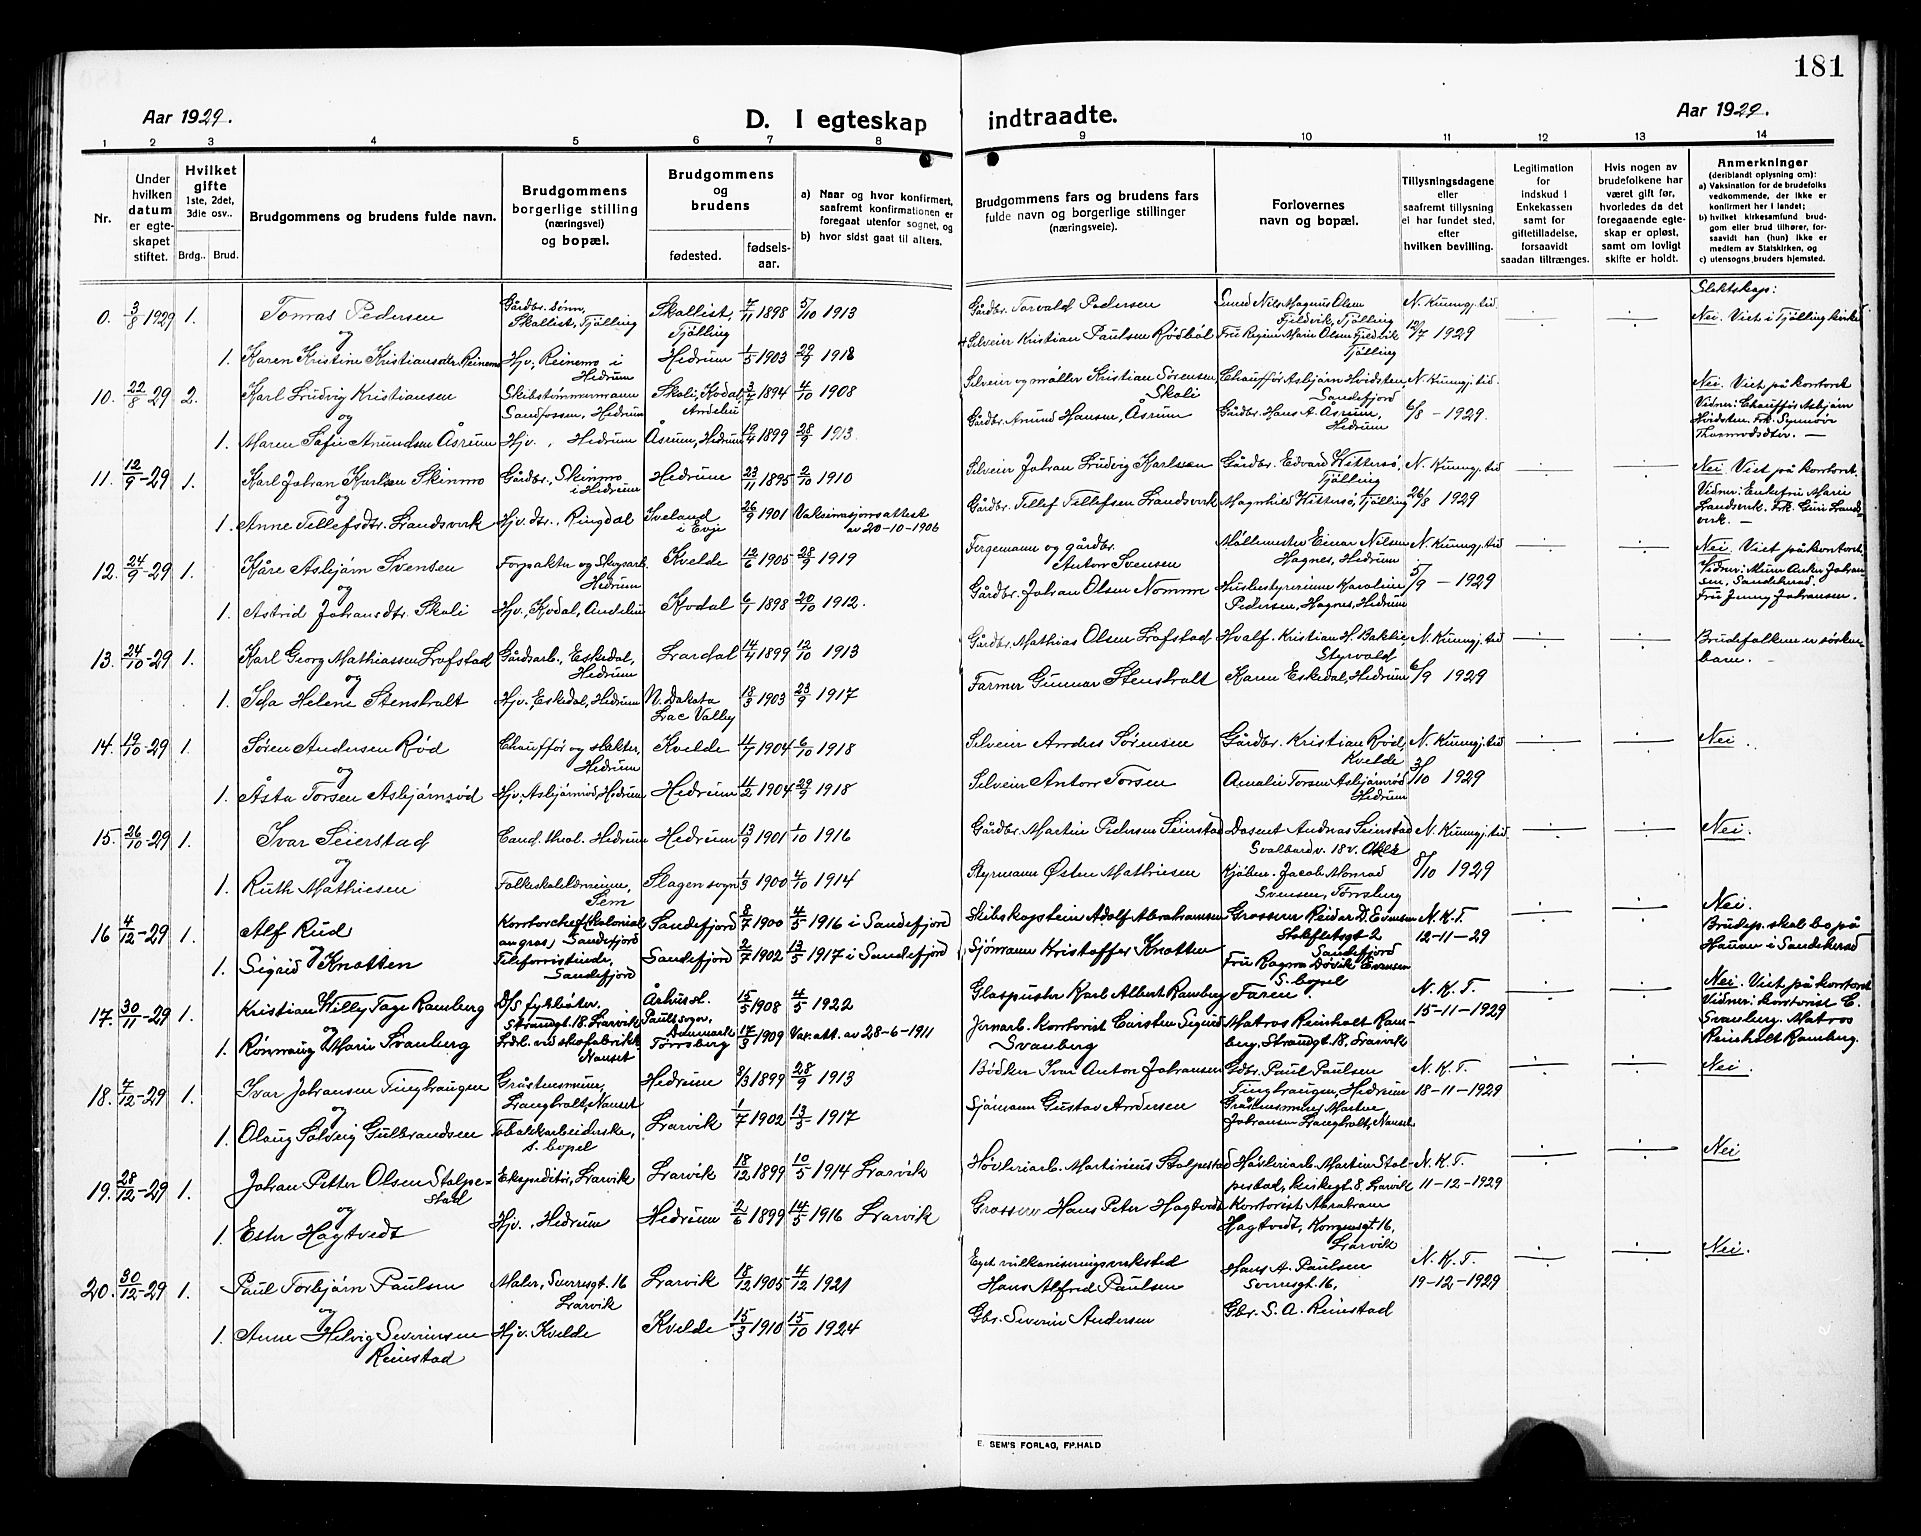 181
Aar 1929.
D. I egteskap
indtraadte.
Aar 1929.
1 2 3 4 5 6 7 8 9 10 11 12 13 14
Nr.
Under hvilken datum er egteskapet stiftet.
Hvilket gifte 1ste, 2det, 3die osv..
Brdg.. Brud.
Brudgommens og brudens fulde navn.
Brudgommens borgerlige stilling (næringsvei) og bopæl.
Brudgommens og brudens
fødested.
fødselsaar.
a) Naar og hvor konfirmert, saafremt konfirmationen er foregaat utenfor sognet, og
b) hvor sidst gaat til alters.
Brudgommens fars og brudens fars fulde navn og borgerlige stillinger (næringsveie).
Forlovernes navn og bopæl.
Tillysningsdagene eller saafremt tillysning ei har fundet sted, efter hvilken bevilling.
Legitimation for indskud i Enkekassen samt for giftetilladelse, forsaavidt saadan tiltrænges.
Hvis nogen av brudefolkene har været gift før, hvorledes da det foregaaende egteskap er opløst, samt om lovligt skifte er holdt.
Anmerkninger (deriblandt oplysning om):
a) Vaksination for de brudefolks vedkommende, der ikke er konfirmert her i landet;
b) hvilket kirkesamfund brudgom eller brud tilhører, forsaavidt han (hun) ikke er medlem av Statskirken, og
c) utensogns bruders hjemsted.
Slektskap:
0. 3/8 1929 1. Tomas Pedersen Gårdbr. sønn, Skallist, Tjølling Skallist, Tjølling 7/11 1898 5/10 1913 Gårdbr. Torvald Pedersen Smed Nils Magnus Olsen Fjeldvik, Tjølling N. Kunngj. tid Nei. Viet i Tjølling kirke
og
1. Karen Kristine Kristiansdtr. Reinemo Hjv. Reinemo i Hedrum Hedrum 1/5 1903 29/9 1918 Kristian Paulsen Rødbøl Fru Regine Marie Olsen Fjeldvik Tjølling 12/7 1929
10. 22/8-29 2. Karl Ludvig Kristiansen Skibstømmermann Sandfossen, Hedrum Skoli, Kodal, Andebu 3/7 1894 4/10 1908 Selveier og møller Kristian Sørensen, Skoli Chauffør Asbjørn Hvidsten Sandefjord N. Kunngj. tid. Nei. Viet på kontoret
og
1. Maren Sofie Amundsen Åsrum Hjv., Hedrum Åsrum, Hedrum 19/4 1899 28/9 1913. Gårdbr. Amund Hansen, Åsrum Gårdbr. Hans A. Åsrum, Hedrum 6/8 - 1929. Vidner: Chauffør Asbjørn Hvidsten. Frk. Synnøve
11. 12/9-29 1. Karl Johan Karlsen Skinmo Gårdbr., Skinmo i Hedrum Hedrum 23/11 1895 2/10 1910 Selveier Johan Ludvig Karlsen Gårdbr. Edvard Wittersø, Tjølling N. Kunngj. tid Nei. Viet på kontoret.
og
1. Anne Tellefsdtr. Landsverk Hjv. dtr., Ringdal Iveland i Evje 26/9 1901 Vaksinasjonsattest av 20-10-1906 Gårdbr. Tellef Tellefsen Landsverk Magnhild Wittersø, Tjølling 26/8 1929 Vidner: Enkefru Marie Landsverk. Frk. Gini Landsverk. —
12. 24/9-29 1. Kåre Asbjørn Svensen Forpakter og Skogsarb. Hedrum Kvelde 12/6 1905 28/9 1919 Fergemann og gårdbr. Anton Svensen Møllemester Einar Nilsen Hagnes, Hedrum N. Kunngj. tid Nei. Viet på kontoret.
og
1. Astrid Johansdtr. Skoli Hjv. Kodal, Andebu Kodal 6/1 1898 20/10 1912. Gårdbr. Johan Olsen Nomme Husbestyrerinne Karoline Pedersen, Hagnes, Hedrum 5/9 - 1929 Vidner: Murer Anker Johansen, Sandeherad. Fru Jenny Johansen.
13. 24/10-29 1. Karl Georg Mathiassen Lofstad Gårdsarb., Eskedal, Hedrum Lardal 14/4 1899 12/10 1913 Gårdbr. Mathias Olsen Lofstad Hvalf. Kristian H. Bakke, Styrvold N. Kunngj. tid Brudefolkene er søskenbarn.
og
1. Ida Helene Stensholt Hjv., Eskedal, Hedrum N. Dakota Lac Valley 18/3 1903 23/9 1917 Farmer Gunnar Stensholt Karen Eskedal, Hedrum 6/9 1929
14. 19/10-29 1. Søren Andersen Rød Chauffør og slakter, Hedrum Kvelde 4/7 1904 6/10 1918 Selveier Anders Sørensen Gårdbr. Kristian Rød, Kvelde N. Kunngj. tid Nei.
og
1. Åsta Torsen Asbjørnrød Hjv., Asbjørnrød, Hedrum Hedrum 4/2 1904 29/9 1918 Selveier Anton Torsen Amalie Torsen Asbjørnrød Hedrum 3/10 1929
15. 26/10-29 1. Ivar Seierstad Cand. theol. Hedrum Hedrum 13/9 1901 1/10 1916 Gårdbr. Martin Pedersen Seierstad Dosent Andreas Seierstad Svalbardv. 18 v. Aker N. Kunngj. tid. Nei.
og
1. Ruth Mathiesen Folkeskolelærerinne, Sem Slagen sogn 1/3 1900 4/10 1914 Styrmann Østen Mathiesen Kjøbm. Jacob Monrad Svensen, Tønsberg 8/10 1929
16 4/12-29 1. Alf Rud Kontorchef (Kolonial en gros), Sandefjord Sandefjord 8/7 1900 4/5 1916 i Sandefjord Skibskaptein Adolf Abrahamsen Grosserer Reidar D. Evensen Stokfletsgt 2 Sandefjord N.K.T. 12-11-29 Nei. Brudep. skal bo på Haunen i Sandeherad
og
1. Sigrid Knatten Teleforistinde, Sandefjord Sandefjord 2/7 1902 13/5 1917 i Sandefjord Sjømann Kristoffer Knatten Fru Ragna Døvik Evensen S. bopel
17. 30/11-29 1. Kristian Willy Tage Ramberg D/S fyrbøter, Strandgt. 18. Larvik Århus sl. Pauls sogn, Danmark 15/5 1908 4/5 1922 Glaspuster Karl Albert Ramberg Faren. N.K.T. 15-11-1929 Nei. Viet på kontoret
og
1. Rønnaug Marie Svanberg Ardb. ved skofabrikk Nanset Tønsberg 17/3 1909 Vac. att. av 28-6-1911 Jernarb. Kontorist Carsten Sigurd Svanberg Matros Reinholt Ramberg. Strandgt. 18, Larvik Vidner: Kontorist C. Svanberg. Matros Reinholt Ramberg.
18. 7/12-29 1. Ivar Johansen Tinghaugen Gråstensmurer, Langholt, Nanset Hedrum 8/3 1899 28/9 1913 Bødker Ivar Anton Johansen Gdbr. Paul Paulsen Tinghaugen, Hedrum N.K.T. 18-11-1929 Nei.
og
1. Olaug Solveig Gulbrandsen Tobakkarbeiderske, s. bopel Larvik 1/7 1902 13/5 1917 Sjømann Gustav Andersen Gråstensmurer Martin Johansen Langholt, Nanset
19. 28/12-29 1. Johan Petter Olsen Stolpestad Ekspeditør, Larvik Larvik 18/12 1899 10/5 1914 Larvik Høvleriarb. Martinius Stolpestad Høvleriarb. Martin Stolpestad, Kirkegt. 8. Larvik N.K.T. 11-12-1929 Nei
og
1. Ester Hagtvedt Hjv., Hedrum Hedrum 2/6 1899 14/5 1916 Larvik Grosserer Hans Peter Hagtvedt Kontorist Abraham Hagtvedt, Kongensgt. 16, Larvik
20. 30/12-29 1. Paul Torbjørn Paulsen Maler, Sverresgt. 16 Larvik Larvik 18/12 1905 4/12 1921 Eget vulkaniseringsverksted Hans Alfred Paulsen Hans A. Paulsen Sverresgt. 16, N.K.T. 19-12-1929 Nei.
og
1. Anne Helvig Severinsen Reinstad Hjv. Kvelde Kvelde 15/3 1910 15/10 1924 Gbr. Severin Andersen Gbr. S. A. Reinstad
E. SEM'S FORLAG, FR.HALD